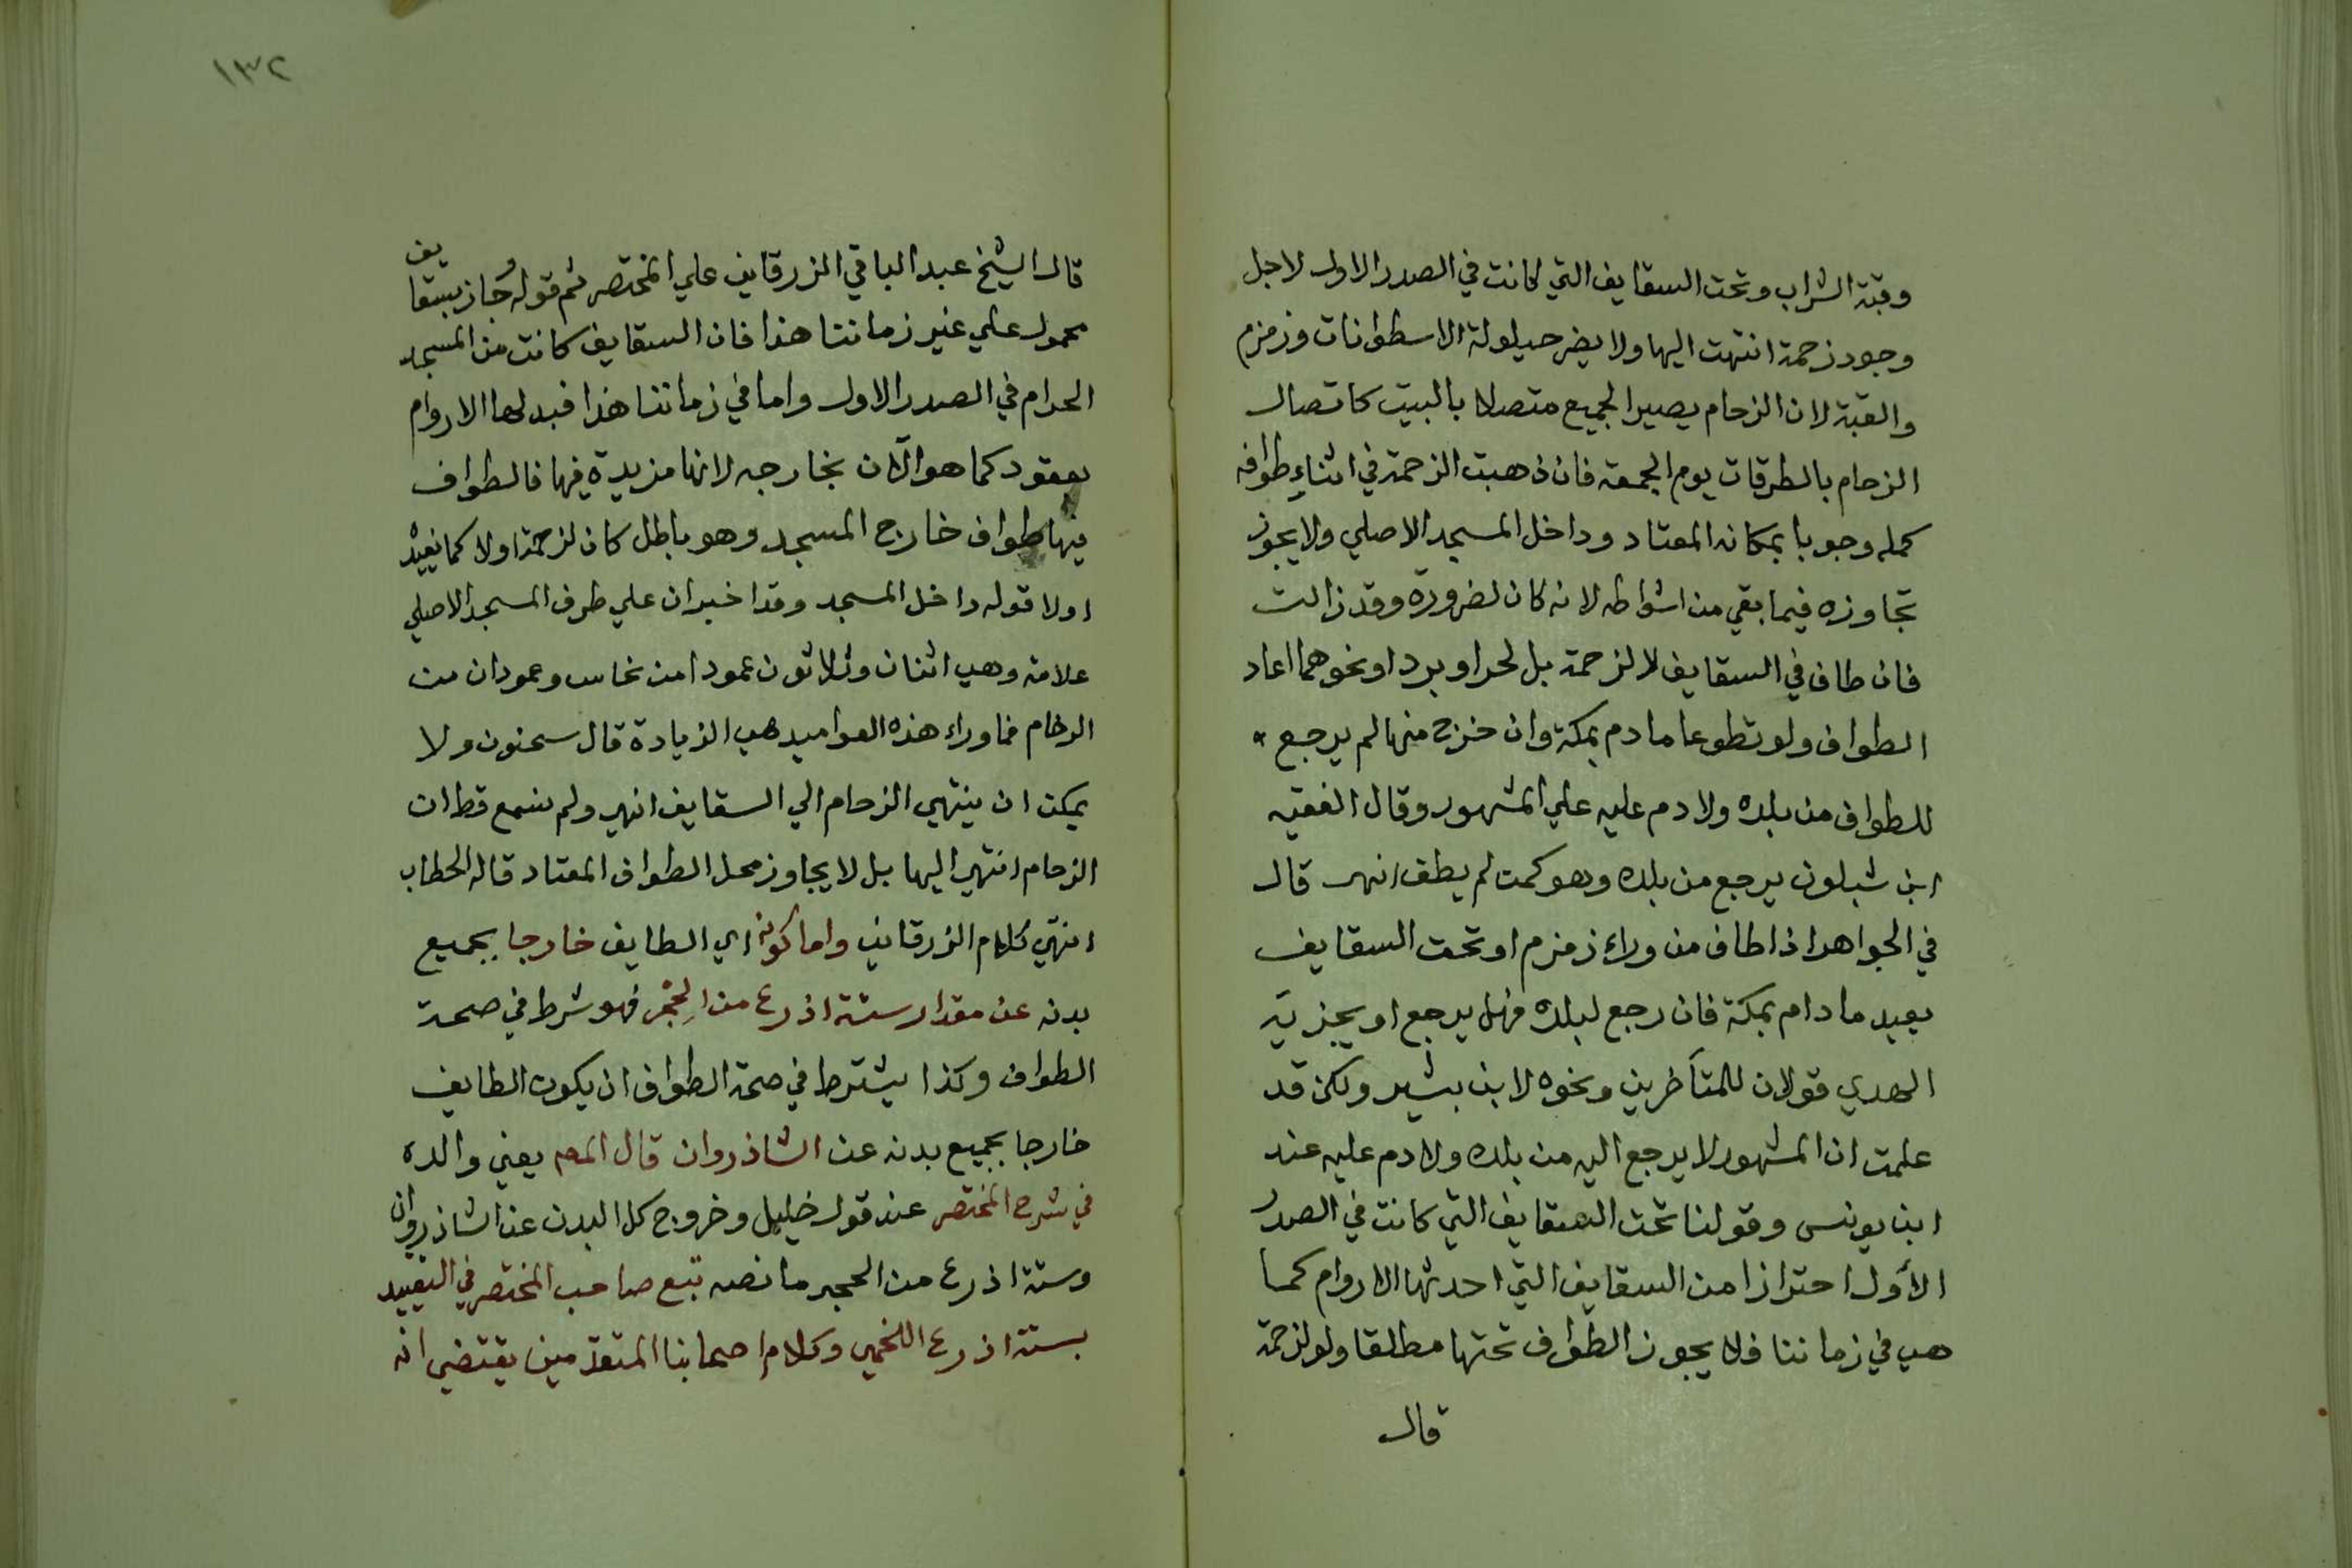 وقبة الشراب وتحت السقايف التي كانت في الصدر الاول لاجل
وجود زحمة انتهت اليها ولا يضر حيلولة الاسطوانات وزمزم
والقبة لان الزحام يصير الجميع متصلا بالبيت كاتصال
الزحام بالطرقات يوم الجمعة فان ذهبت الزحمة في اثناء طوافه
كمله وجوبا بمكانه المعتاد وداخل المسجد الاصلي ولا يجوز
تجاوزه فيما بقي من اشواطه لانه كان لضرورة وقد زالت
فان طاف في السقايف لا لزحمة بل لحر او برد او نحوهما اعاد
الطواف ولو تطوعا ما دم بمكة وان خرج منها لم يرجع
للطواف من بلده ولا دم عليه علي المشهور وقال الفقيه
ابن شبلون يرجع من بلده وهو كمت لم يطف انهى قال
في الجواهر اذا طاف من وراء زمزم او تحت السقايف
يعيد ما دام بمكة فان رجع لبلده فهل يرجع او يجزيه
الهدي قولان للمتأخرين ونحوه لابن بشير ولكن قد
علمت ان المشهور لا يرجع اليه من بلده ولا دم عليه عند
ابن يونس وقولنا تحت السقايف التي كانت في الصدر
الأول احترازا من السقايف التي احدثها الاروام كما
هي في زماننا فلا يجوز الطواف تحتها مطلقا ولو لزحمة
قال
١٣٢
قال الشيخ عبد الباقي الزرقاني علي المختصر ثم قوله وجاز بسقايف
محمول علي غير زماننا هذا فان السقايف كانت من المسجد
الحرام في الصدر الاول واما في زماننا هذا فبدلها الاروام
بعقود كما هو الآن بخارجه لانها مزيدة فيها فالطواف
فيها طواف خارج المسجد وهو باطل كان لزحمة اولا كما يفيد
اولا قوله داخل المسجد وقد اخبر ان علي طرف المسجد الاصلي
علامة وهي اثنان وثلاثون عمودا من نحاس وعمودان من
الرخام فما وراء هذه العواميد هي الزيادة قال سحنون ولا
يمكن ان ينتهي الزحام الي السقايف انهى ولم نسمع قط ان
الزحام انتهى اليها بل لا يجاوز محل الطواف المعتاد قاله الحطاب
انتهي كلام الزرقاني واما كونه اي الطايف خارجا بجميع
بدنه عن مقدار ستة اذرع من الحِجْر فهو شرط في صحة
الطواف وكذا يشترط في صحة الطواف ان يكون الطايف
خارجا بجميع بدنه عن الشاذروان قال المص يعني والده
في شرح المختصر عند قول خليل وخروج كل البدن عن الشاذروان
وستة اذرع من الحجر ما نصه تبع صاحب المختصر في التقييد
بستة اذرع اللخمي وكلام اصحابنا المتقدمين يقتضي انه